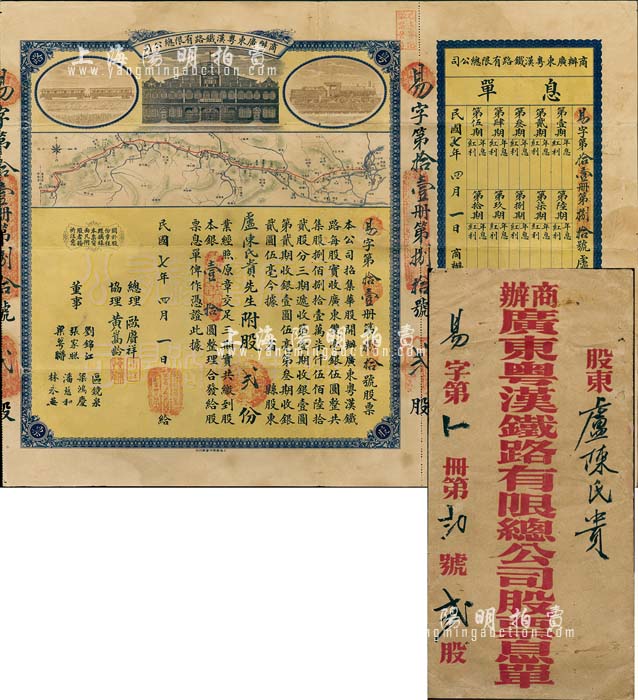 商辦廣東粤漢鐵路有限總公司
易字第拾壹冊第捌拾號股票
本公司招集華股開辦廣東粤漢鐵
路每股實收廣東毫銀伍圓整共
集股捌佰捌拾壹萬柒仟伍佰陸拾
貳股分三期遞收第壹期收銀壹圓
第貳期收銀壹圓伍毫第叁期收銀
貳圓伍毫今據
縣股東
盧陳氏貴先生附股貳份
業經照原章交足三期實共繳到股
本銀壹拾圓整理合發給股
票息單俾作憑證此據
民國七年四月一日給
總理 歐賡祥
協理 黃嵩齡
董事
劉錦江
張家照
梁萼聯
區競泉
梁鴻慶
潘慈和
林永安
易字第拾壹冊第捌拾號
貳股
易字第拾壹冊第捌拾號
貳股
商辦廣東粤漢鐵路有限總公司
息單
易字第拾壹冊第捌拾號
第壹期 年息 紅利
第貳期 年息 紅利
第叁期 年息 紅利
第肆期 年息 紅利
第伍期 年息 紅利
第陸期 年息 紅利
第柒期 年息 紅利
第捌期 年息 紅利
第玖期 年息 紅利
第拾期 年息 紅利
民國七年四月一日
商辦
股東 盧陳氏貴
商辦廣東粤漢鐵路有限總公司股票息單
易字第 冊第 號 貳股
上海陽明拍賣
www.yangmingauction.com
陽明拍賣
yangmingauction.com